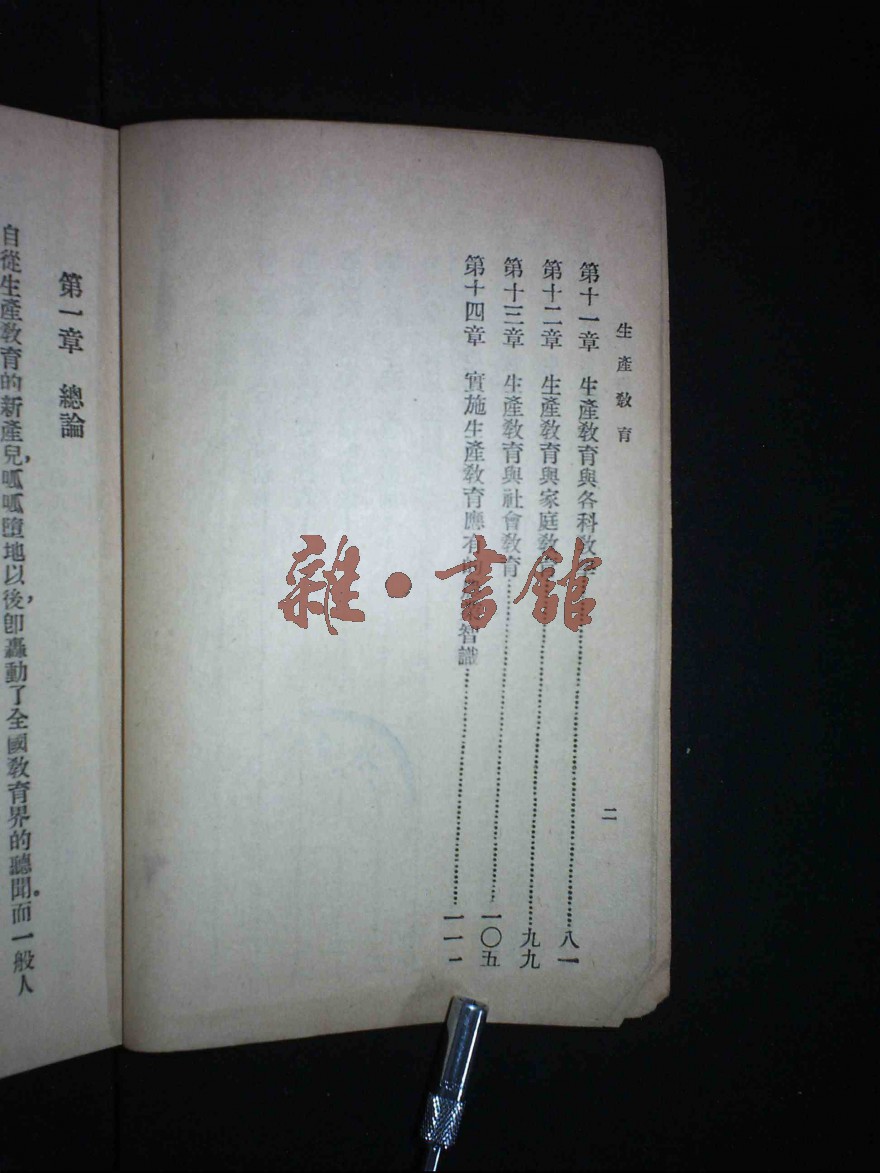 生產教育
二
第十一章 生產教育與各科教學 八一
第十二章 生產教育與家庭教育 九九
第十三章 生產教育與社會教育 一〇五
第十四章 實施生產教育應有的 智識 一一一
第一章 總論
自從生產教育的新產兒,呱呱墮地以後,卽轟動了全國教育界的聽聞。而一般人
雜·書館